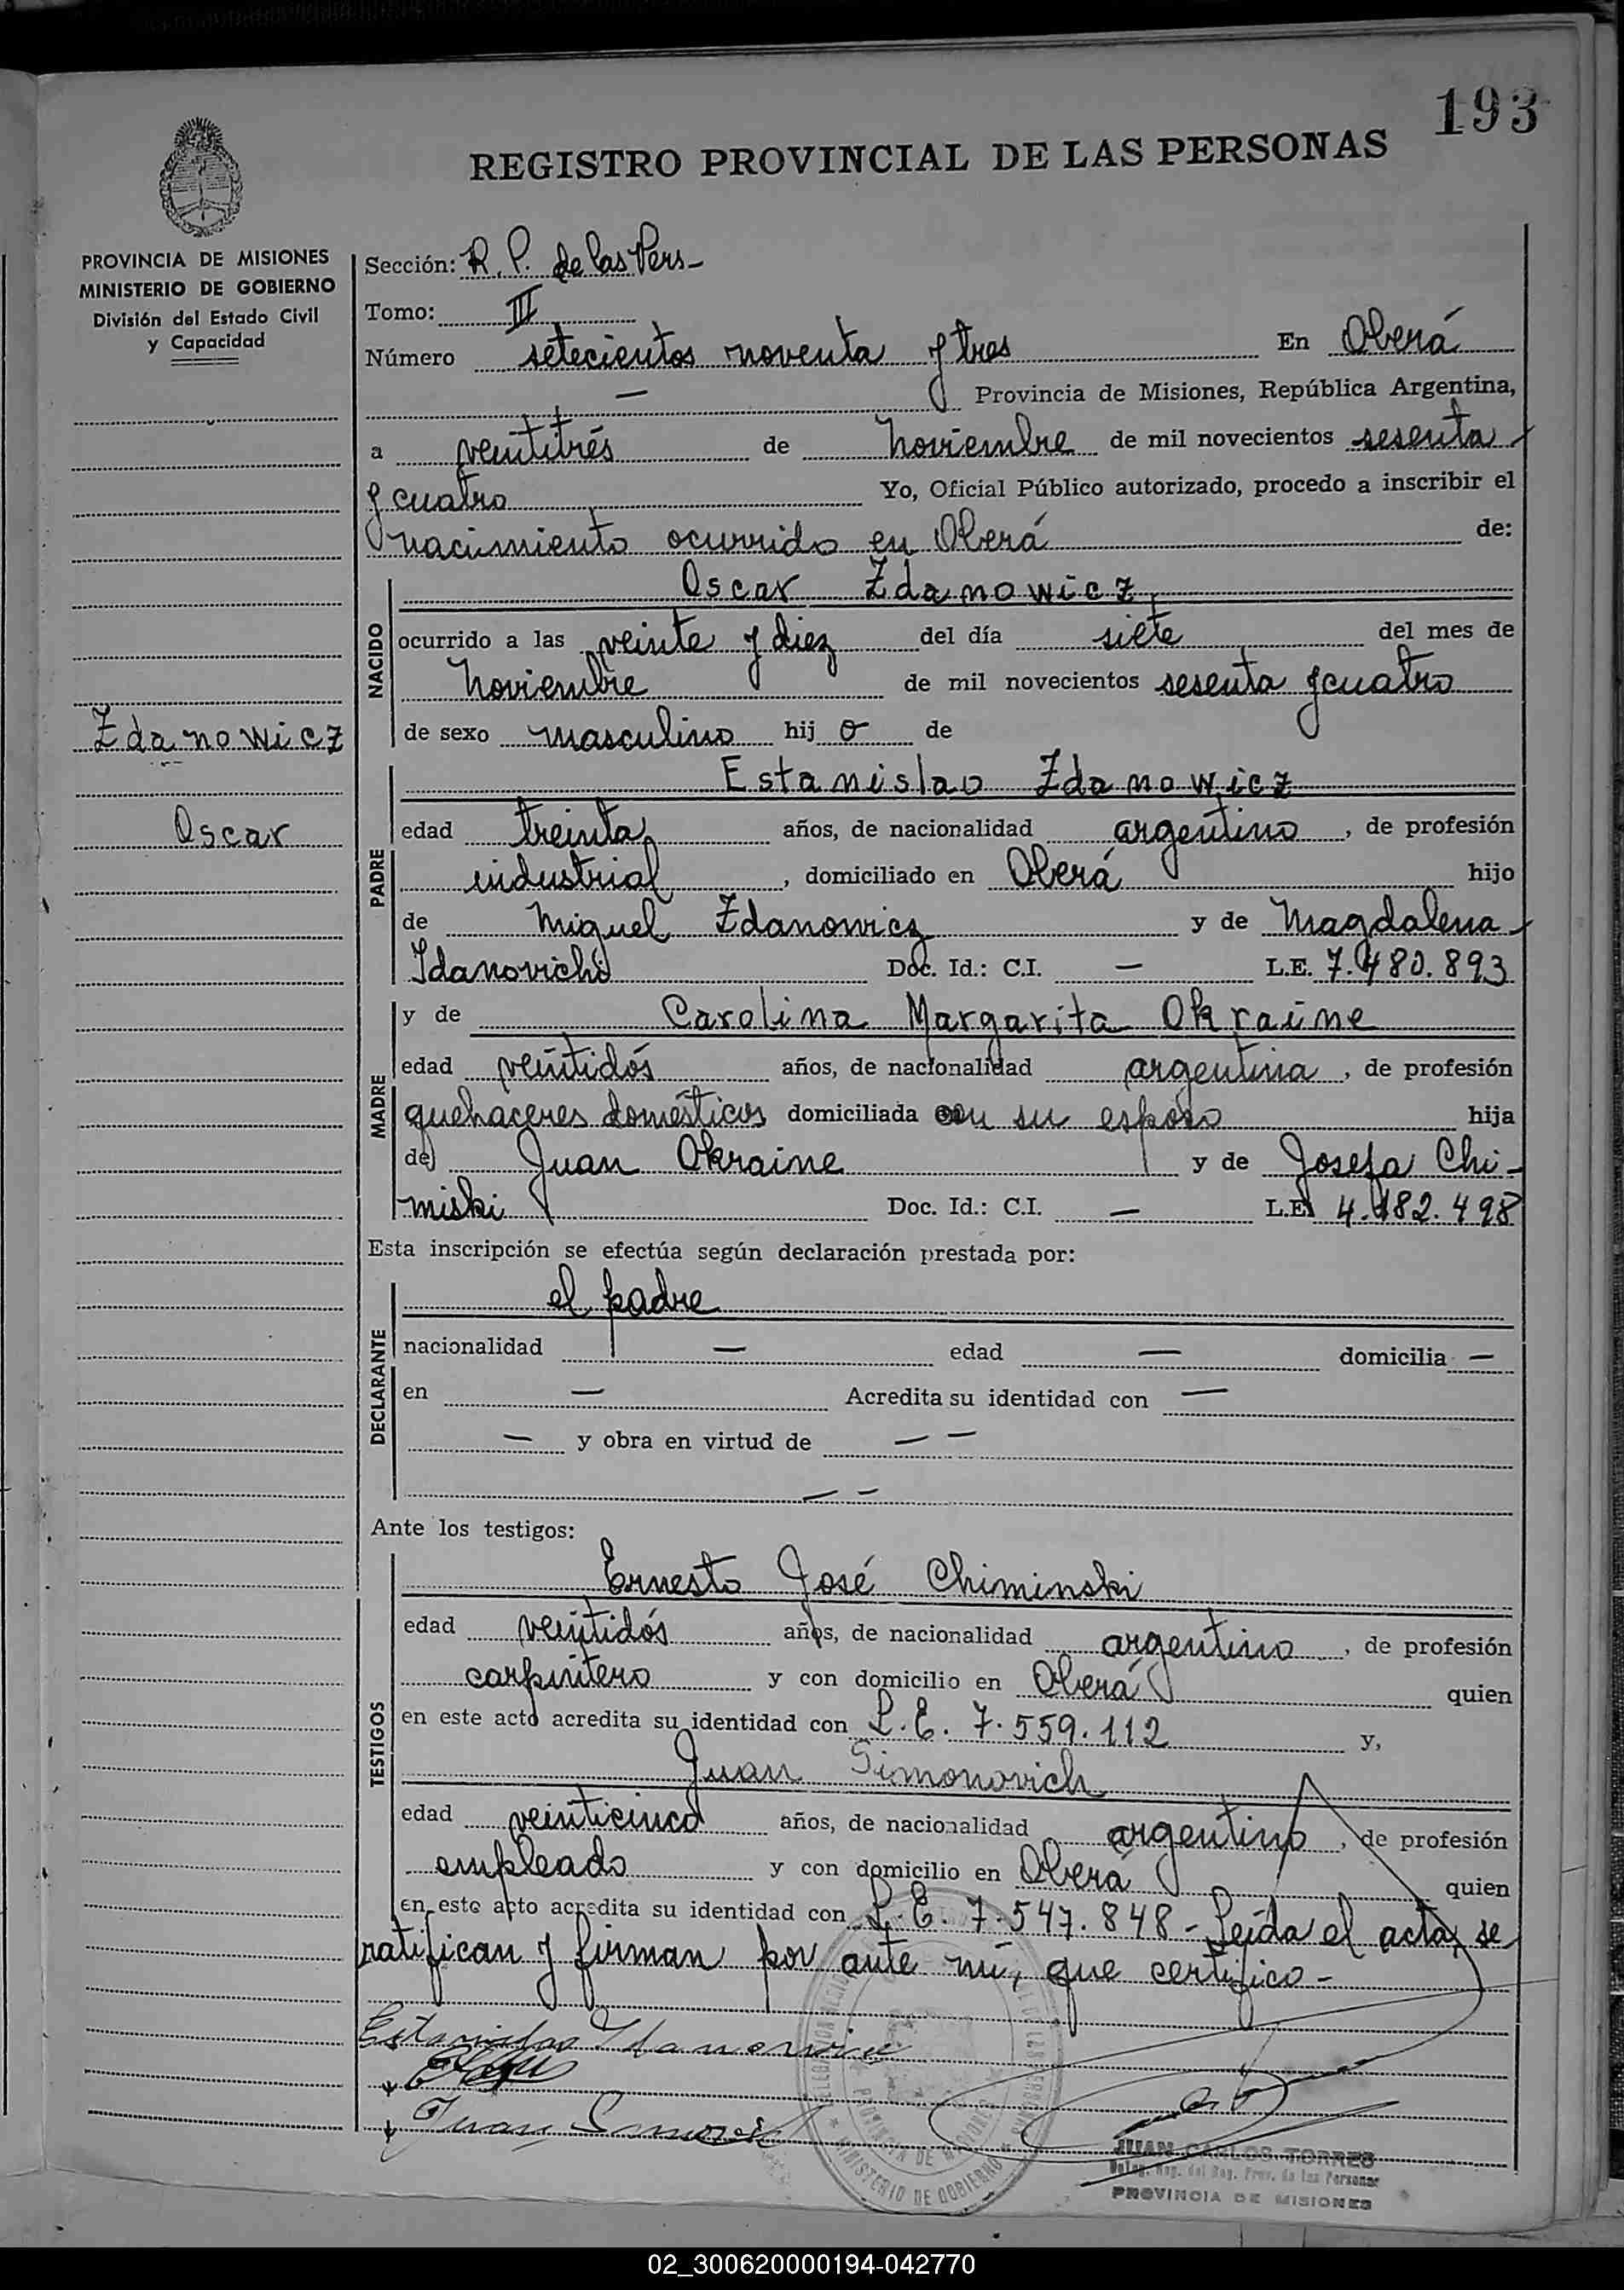 193
REGISTRO PROVINCIAL DE LAS PERSONAS
PROVINCIA DE MISIONES
MINISTERIO DE GOBIERNO
División del Estado Civil
y Capacidad
Zdanowicz
Oscar
Sección: R. P. de las Pers-
Tomo: III
Número setecientos noventa y tres En Oberá
— Provincia de Misiones, República Argentina,
a veintitrés de Noviembre de mil novecientos sesenta
y cuatro Yo, Oficial Público autorizado, procedo a inscribir el
nacimiento ocurrido en Oberá de:
NACIDO
Oscar Zdanowicz
ocurrido a las veinte y diez del día siete del mes de
Noviembre de mil novecientos sesenta y cuatro
de sexo masculino hij o de
PADRE
Estanislao Zdanowicz
edad treinta años, de nacionalidad argentino, de profesión
industrial, domiciliado en Oberá hijo
de Miguel Zdanowicz y de Magdalena
Idanovichi Doc. Id.: C.I. — L.E. 7.480.893
MADRE
y de Carolina Margarita Okraine
edad veintidós años, de nacionalidad argentina, de profesión
quehaceres domésticos domiciliada con su esposo hija
de Juan Okraine y de Josefa Chi-
miski Doc. Id.: C.I. — L.E. 4.182.498
Esta inscripción se efectúa según declaración prestada por:
DECLARANTE
el padre
nacionalidad — edad — domicilia —
en — Acredita su identidad con —
— y obra en virtud de — —
— —
Ante los testigos:
TESTIGOS
Ernesto José Chiminski
edad veintidós años, de nacionalidad argentino, de profesión
carpintero y con domicilio en Oberá quien
en este acto acredita su identidad con L.E. 7.559.112 y,
Juan Simonovich
edad veinticinco años, de nacionalidad argentino, de profesión
empleado y con domicilio en Oberá quien
en este acto acredita su identidad con L.E. 7.547.848 - Leída el acta, se
ratifican y firman por ante mí, que certifico -
Estanislao
Juan
PROVINCIA DE MISIONES
MINISTERIO DE GOBIERNO
JUAN CARLOS TORRES
Reg. del Reg. Prov. de las Personas
PROVINCIA DE MISIONES
02_300620000194-042770